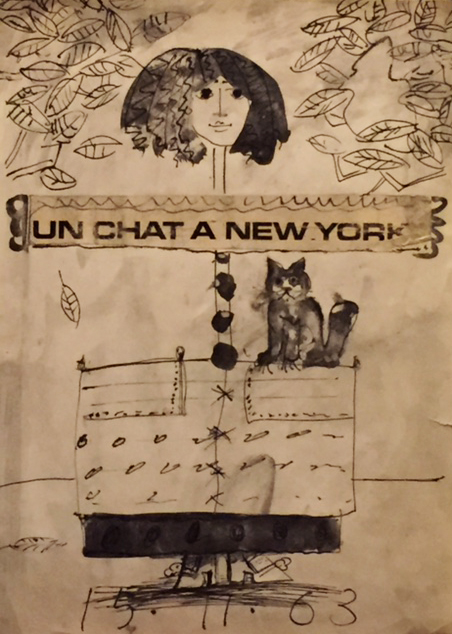 UN CHAT A NEW YORK
15.11.63